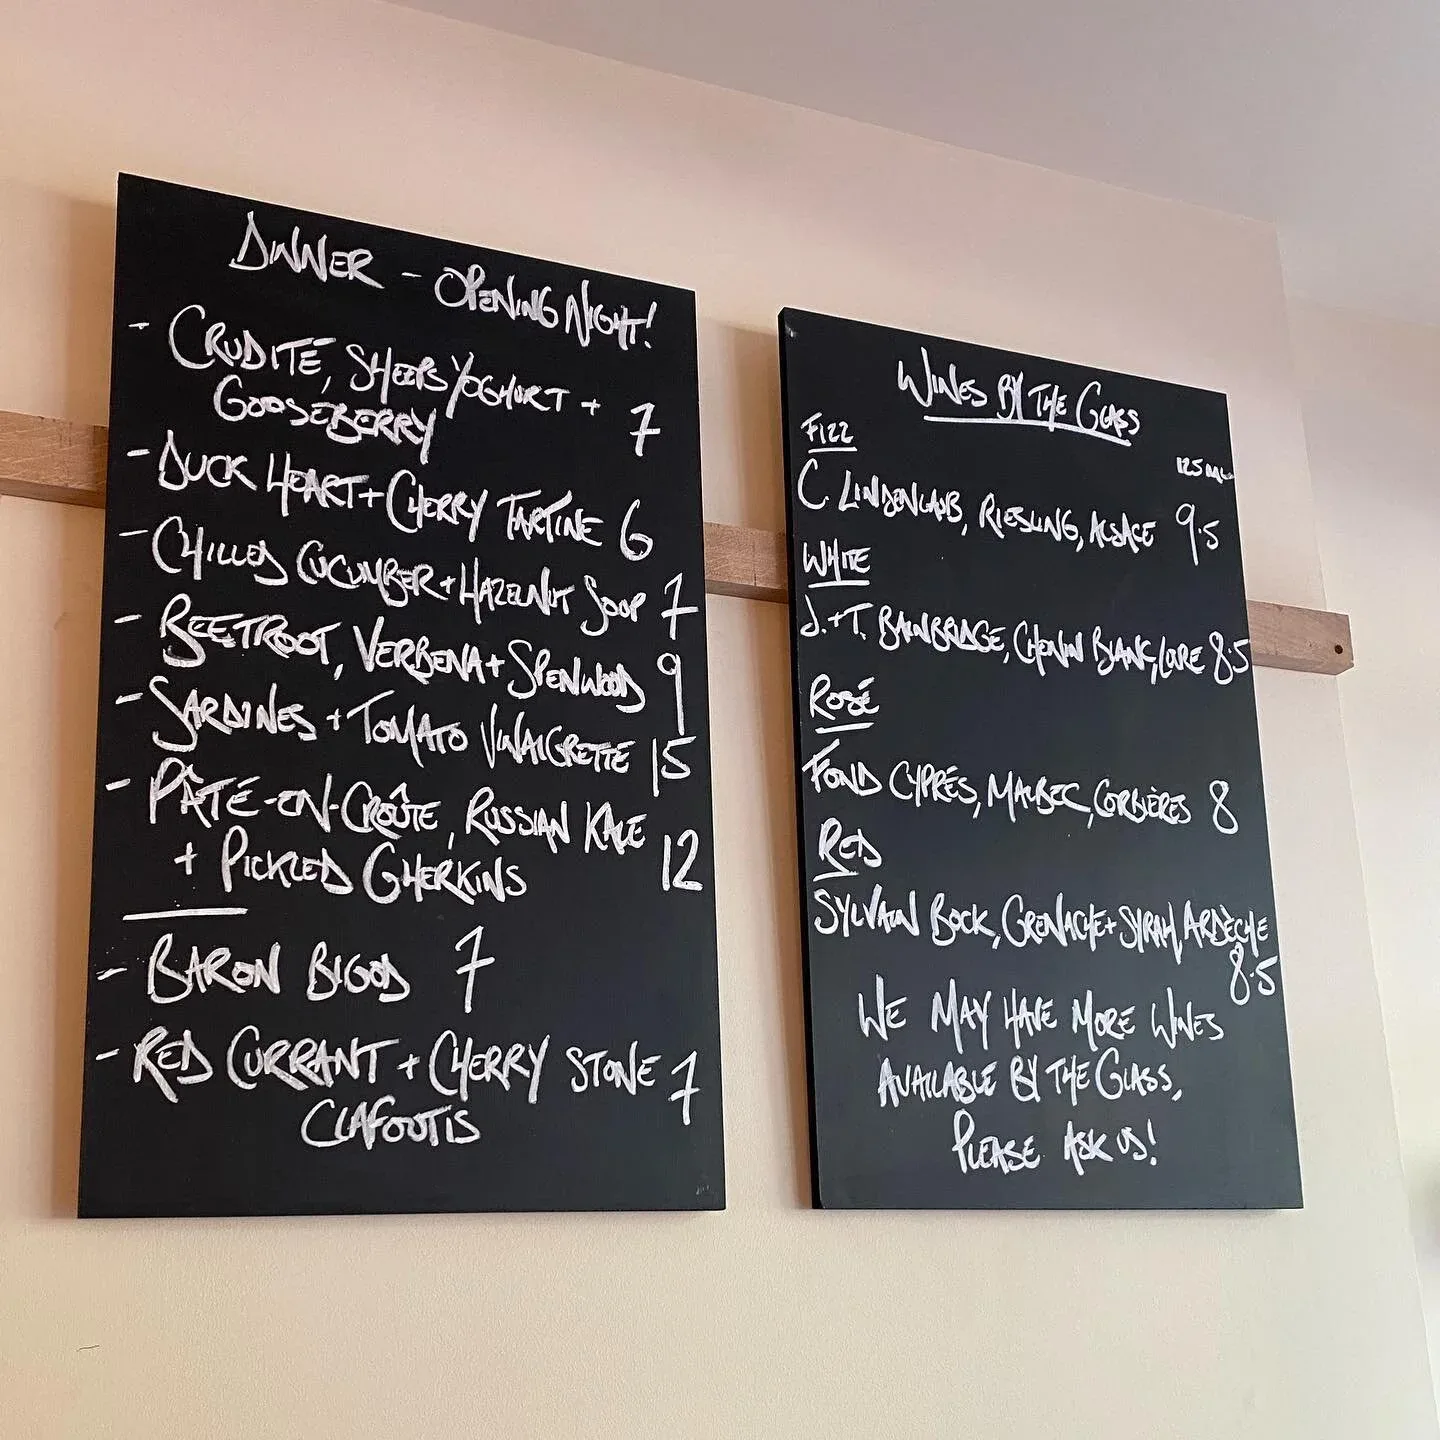 DINNER - OPENING NIGHT!
- CRUDITÉ, SHEEPS YOGHURT +
GOOSEBERRY 7
- DUCK HEART + CHERRY TARTINE 6
- CHILLED CUCUMBER + HAZELNUT SOUP 7
- BEETROOT, VERBENA + SPENWOOD 9
- SARDINES + TOMATO VINAIGRETTE 15
- PÂTÉ-EN-CROÛTE, RUSSIAN KALE
+ PICKLED GHERKINS 12
- BARON BIGOD 7
- RED CURRANT + CHERRY STONE 7
CLAFOUTIS
WINES BY THE GLASS
FIZZ
125ML
C LINDENLAUB, RIESLING, ALSACE 9.5
WHITE
J.+T. BAINBRIDGE, CHENIN BLANC, LOIRE 8.5
ROSÉ
FOND CYPRÉS, MALBEC, CORBIÈRES 8
RED
SYLVAIN BOCK, GRENACHE + SYRAH, ARDÈCHE
8.5
WE MAY HAVE MORE WINES
AVAILABLE BY THE GLASS,
PLEASE ASK US!